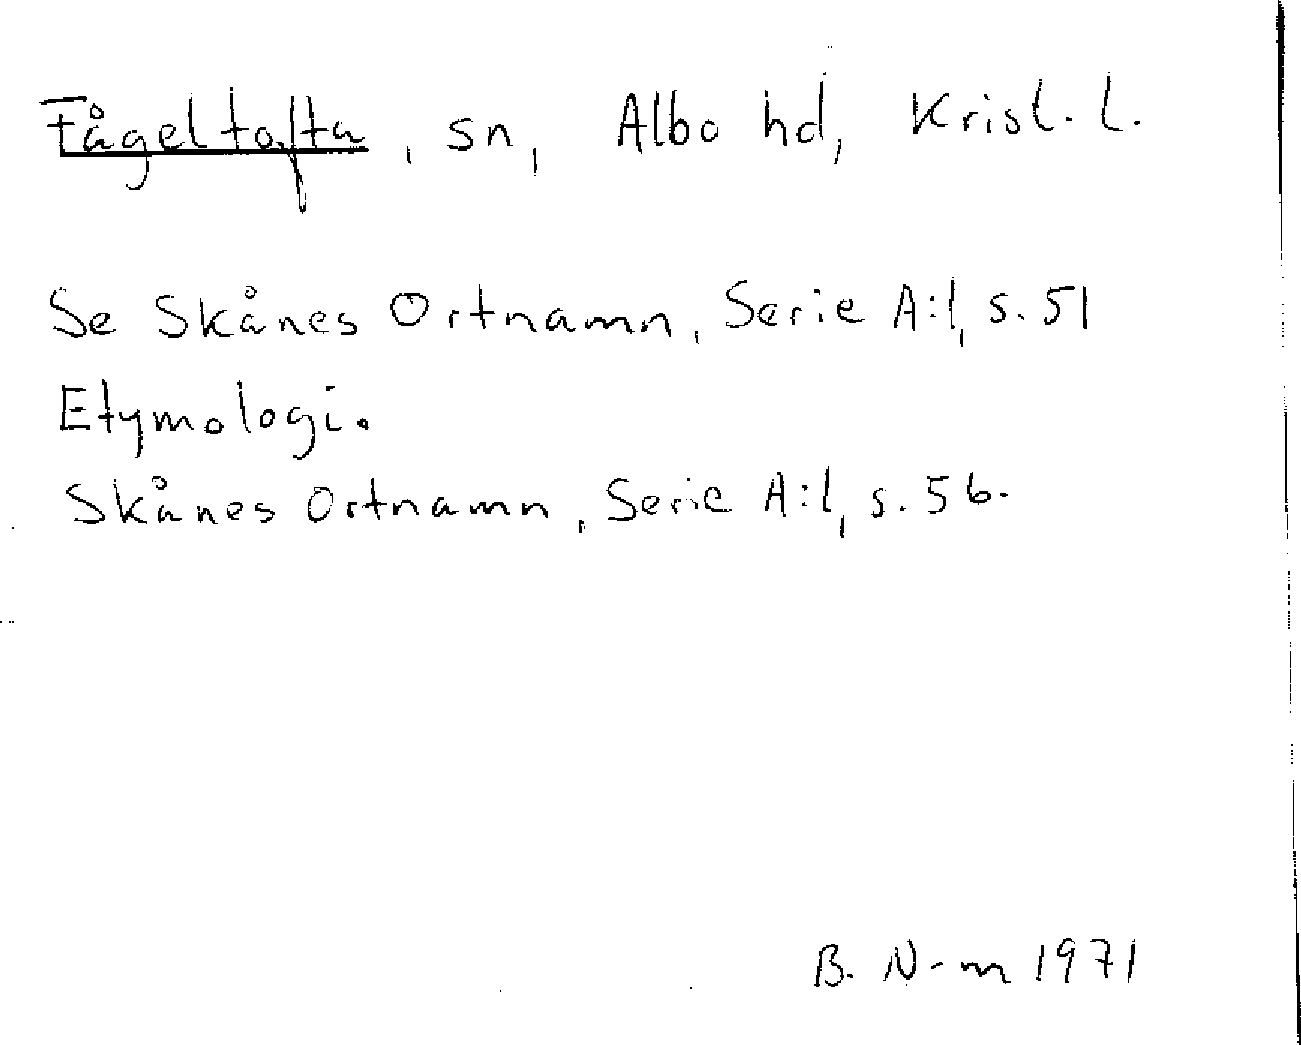 Fågeltofta, sn, Albo hd, Krist. l.
Se Skånes Ortnamn, Serie A:1, s. 51
Etymologi.
Skånes Ortnamn, Serie A:1, s. 56.
B. N-m 1971